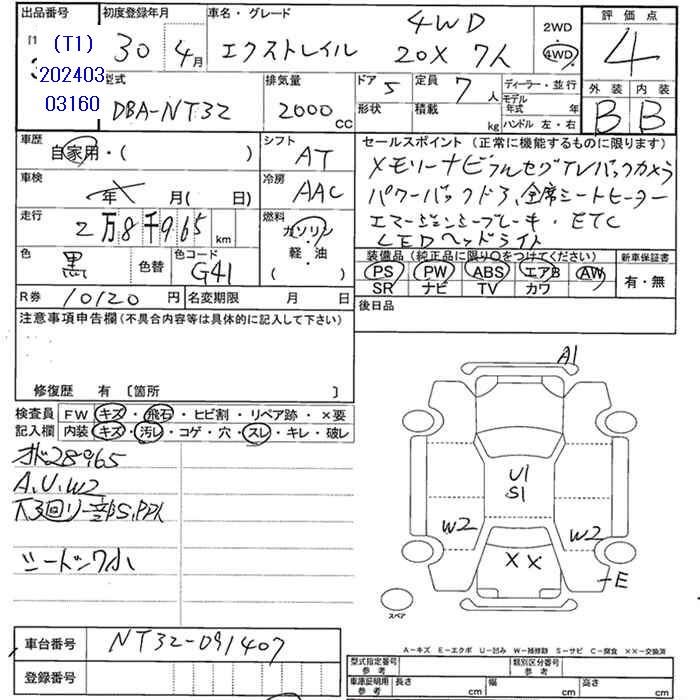 出品番号 初度登録年月 車名・グレード 2WD 評価点
(T1)
202403
03160
30 4月 エクストレイル 4WD 20X 7人 ・ 4WD 4
型式 排気量 ドア 5 定員 7人 ディーラー・並行 外装 内装
DBA-NT32 2000CC 形状 積載 kg モデル年式 年 B B
ハンドル 左・右
車歴 シフト セールスポイント (正常に機能するものに限ります)
自家用・( ) AT メモリーナビフルセグTVバックカメラ
車検 年 月(日) 冷房 AAC パワーバックドア、全席シートヒーター
走行 2万8千965km 燃料 ガソリン・軽・油 ( ) エマージェンシーブレーキ・ETC
LEDヘッドライト
色 黒 色替 色コード G41 装備品(純正品に限り○をつけてください) 新車保証書
PS PW ABS エアB AW 有・無
SR ナビ TV カワ
R券 10120円 名変期限 月 日 後日品
注意事項申告欄(不具合内容等は具体的に記入して下さい)
修復歴 有 〔箇所 〕
検査員 FW キズ・飛石・ヒビ割・リペア跡・×要
記入欄 内装 キズ・汚レ・コゲ・穴・スレ・キレ・破レ
28965
A,U,W2
下回り一部S,
シートシワ小
A1
U1
S1
W2 W2
X X
E
スペア
A-キズ E-エクボ U-凹み W-補修跡 S-サビ C-腐食 ××-交換済
車台番号 NT32-091407
登録番号
型式指定番号 参考 類別区分番号 参考
車庫証明用 参考 長さ cm 幅 cm 高さ cm